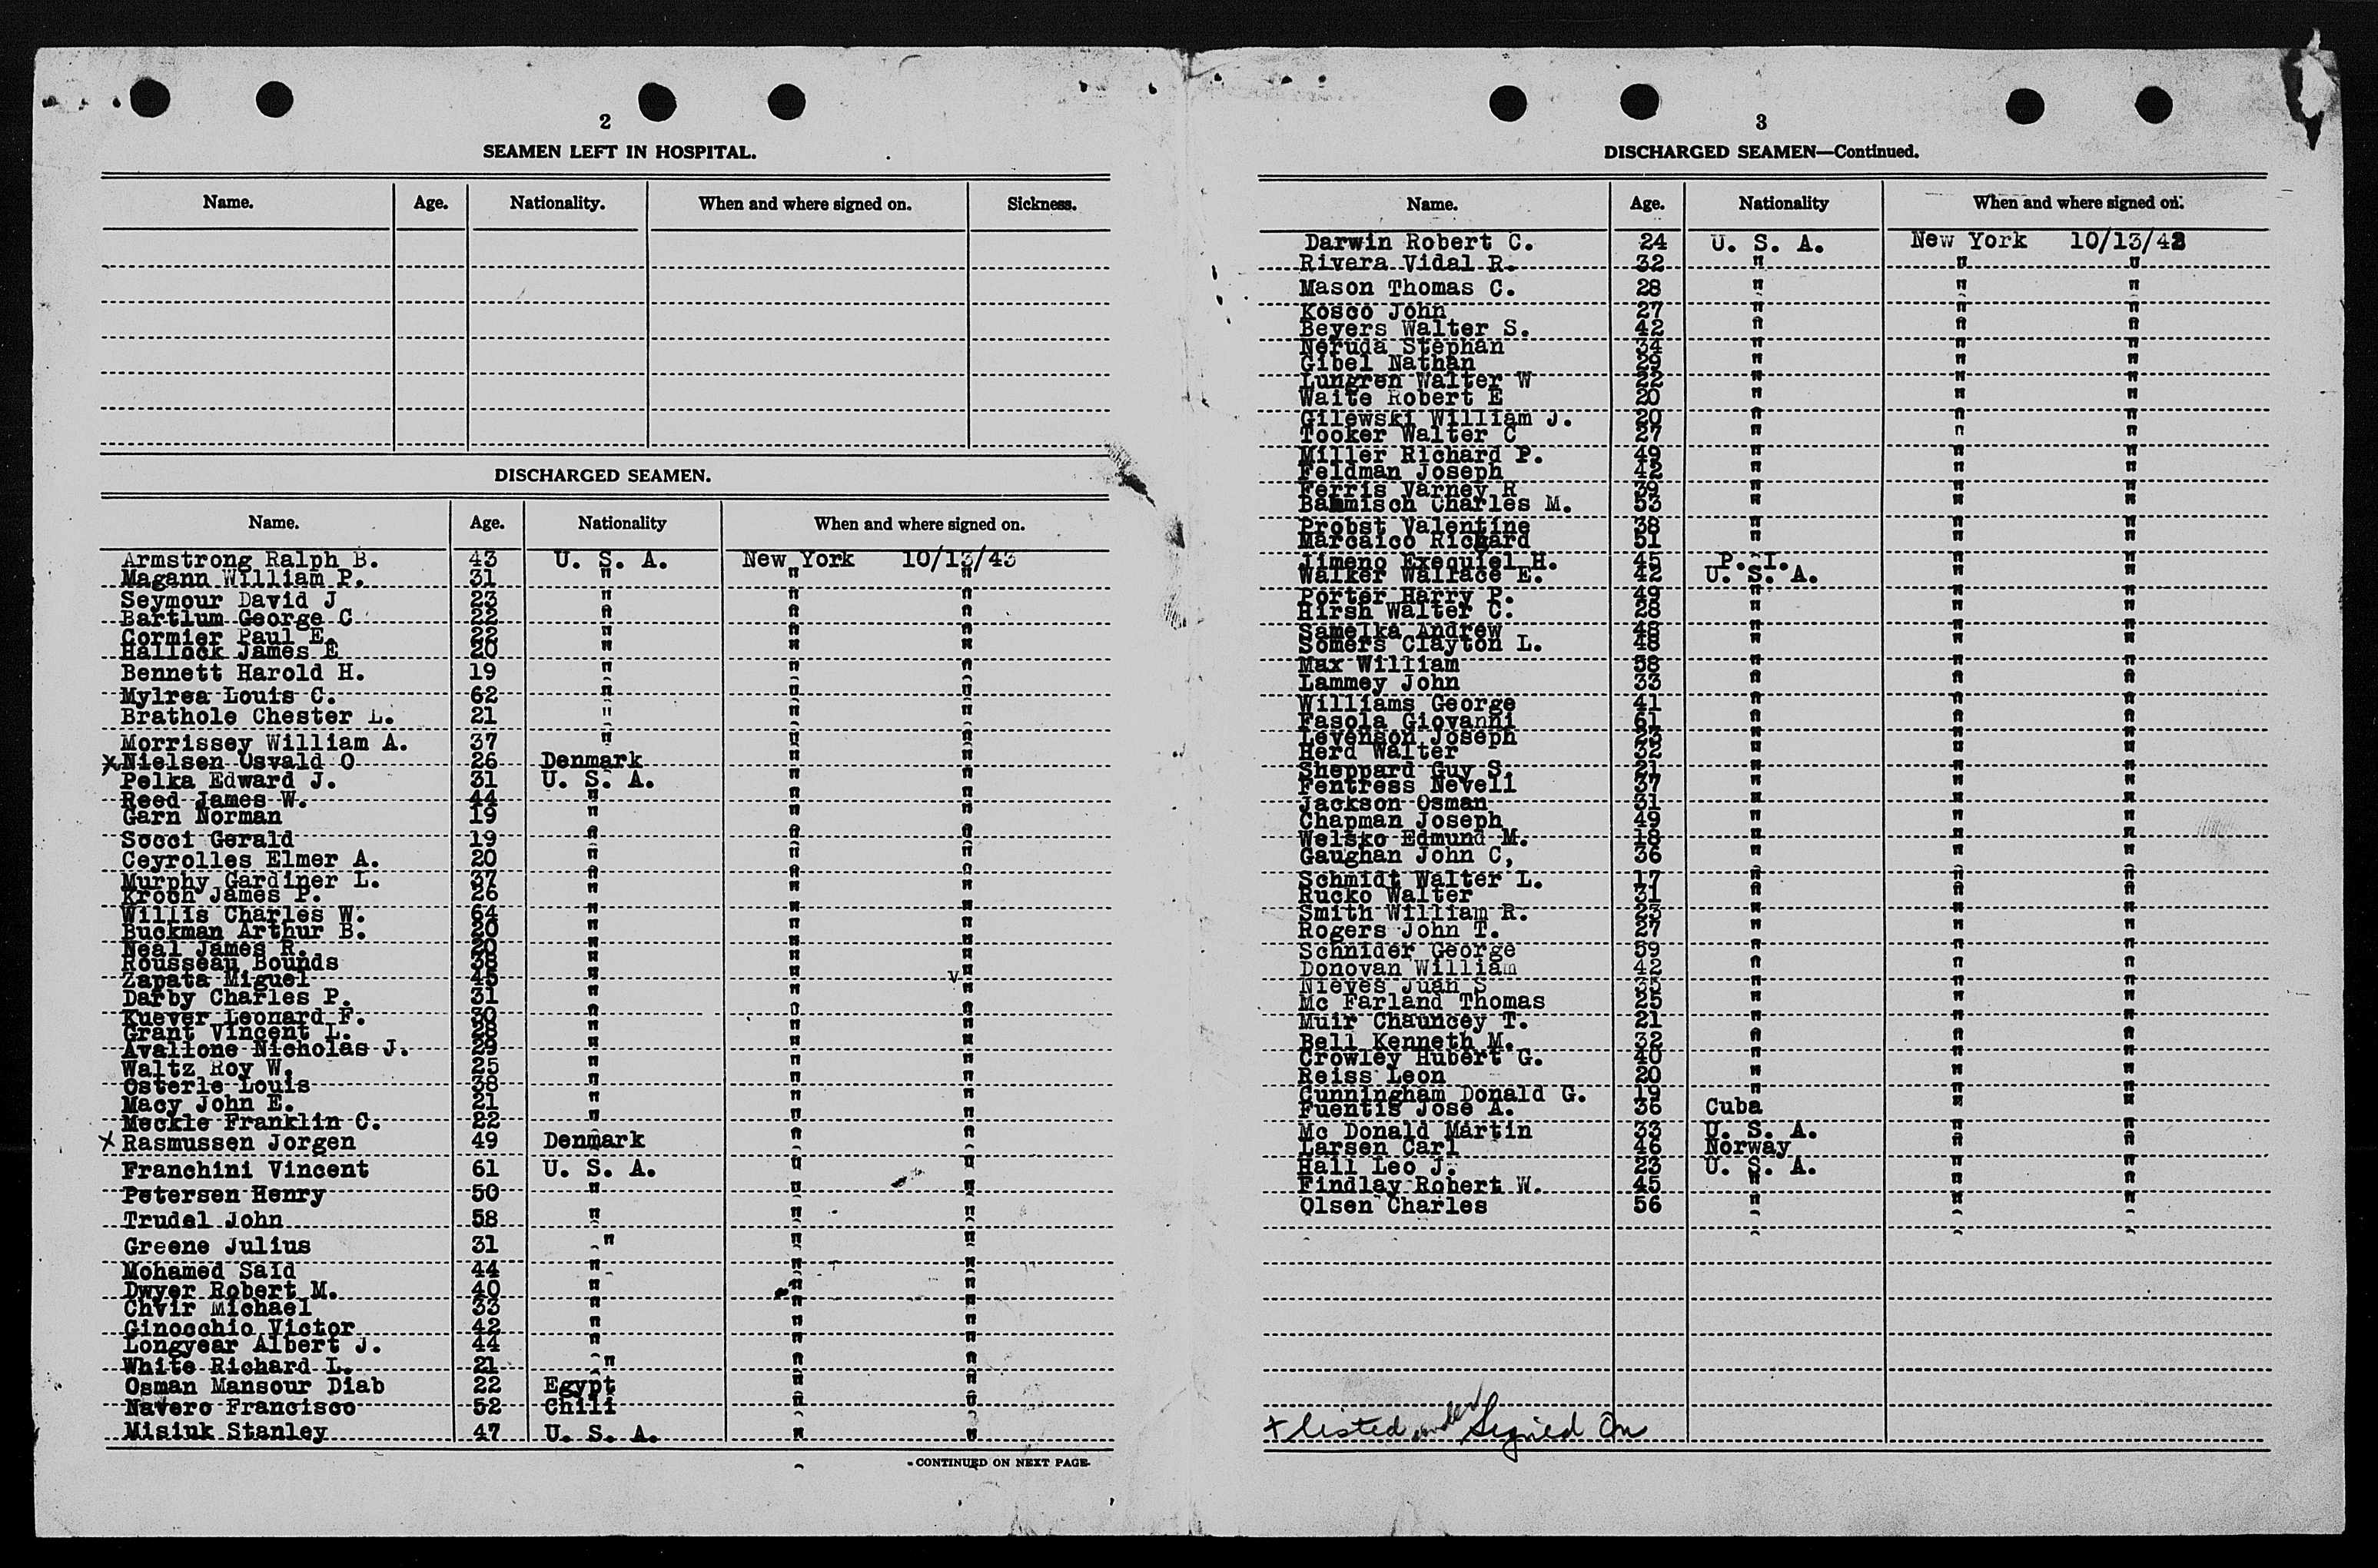 2
SEAMEN LEFT IN HOSPITAL.
Name. Age. Nationality. When and where signed on. Sickness.
DISCHARGED SEAMEN.
Name. Age. Nationality When and where signed on.
Armstrong Ralph B. 43 U. S. A. New York 10/13/43
Magann William P. 31 " " "
Seymour David J 23 " " "
Bartlum George C 22 " " "
Cormier Paul E. 22 " " "
Hallock James E 20 " " "
Bennett Harold H. 19 " " "
Mylrea Louis C. 62 " " "
Brathole Chester L. 21 " " "
Morrissey William A. 37 " " "
x Nielsen Osvald O 26 Denmark " "
Pelka Edward J. 31 U. S. A. " "
Reed James W. 44 " " "
Garn Norman 19 " " "
Socci Gerald 19 " " "
Ceyrolles Elmer A. 20 " " "
Murphy Gardiner L. 37 " " "
Kroch James P. 26 " " "
Willis Charles W. 64 " " "
Buckman Arthur B. 20 " " "
Neal James R. 20 " " "
Rousseau Bounds 38 " " "
Zapata Miguel 45 " " v "
Darby Charles P. 31 " " "
Kuever Leonard F. 30 " " "
Grant Vincent L. 28 " " "
Avallone Nicholas J. 29 " " "
Waltz Roy W. 25 " " "
Osterle Louis 38 " " "
Macy John E. 21 " " "
Meckle Franklin C. 22 " " "
x Rasmussen Jorgen 49 Denmark " "
Franchini Vincent 61 U. S. A. " "
Petersen Henry 50 " " "
Trudel John 58 " " "
Greene Julius 31 " " "
Mohamed Said 44 " " "
Dwyer Robert M. 40 " " "
Chvir Michael 33 " " "
Ginocchio Victor 42 " " "
Longyear Albert J. 44 " " "
White Richard L. 21 " " "
Osman Mansour Diab 22 Egypt " "
Navero Francisco 52 Chili " "
Misiuk Stanley 47 U. S. A. " "
- CONTINUED ON NEXT PAGE-
3
DISCHARGED SEAMEN—Continued.
Name. Age. Nationality When and where signed on.
Darwin Robert C. 24 U. S. A. New York 10/13/43
Rivera Vidal R. 32 " " "
Mason Thomas C. 28 " " "
Kosco John 27 " " "
Beyers Walter S. 42 " " "
Neruda Stephan 34 " " "
Gibel Nathan 29 " " "
Lungren Walter W 22 " " "
Waite Robert E 20 " " "
Gilewski William J. 20 " " "
Tooker Walter C 27 " " "
Miller Richard P. 49 " " "
Feldman Joseph 42 " " "
Ferris Varney R 39 " " "
Bahmisch Charles M. 53 " " "
Probst Valentine 38 " " "
Marcaico Richard 51 " " "
Jimeno Exequiel H. 45 P. I. " "
Walker Wallace E. 42 U. S. A. " "
Porter Harry P. 49 " " "
Hirsh Walter C. 28 " " "
Samelka Andrew 48 " " "
Somers Clayton L. 48 " " "
Max William 58 " " "
Lammey John 33 " " "
Williams George 41 " " "
Fasola Giovanni 61 " " "
Levenson Joseph 23 " " "
Herd Walter 32 " " "
Sheppard Guy S. 21 " " "
Fentress Nevell 37 " " "
Jackson Osman 31 " " "
Chapman Joseph 49 " " "
Welsko Edmund M. 18 " " "
Gaughan John C, 36 " " "
Schmidt Walter L. 17 " " "
Rucko Walter 31 " " "
Smith William R. 23 " " "
Rogers John T. 27 " " "
Schnider George 59 " " "
Donovan William 42 " " "
Nieves Juan S 35 " " "
Mc Farland Thomas 25 " " "
Muir Chauncey T. 21 " " "
Bell Kenneth M. 32 " " "
Crowley Hubert G. 40 " " "
Reiss Leon 20 " " "
Cunningham Donald G. 19 " " "
Fuentis Jose A. 36 Cuba " "
Mc Donald Martin 33 U. S. A. " "
Larsen Carl 46 Norway " "
Hall Leo J. 23 U. S. A. " "
Findlay Robert W. 45 " " "
Olsen Charles 56 " " "
x listed under Signed On